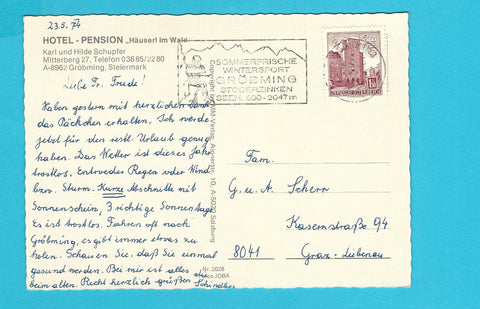 23.5.74
HOTEL - PENSION „Häuserl im Wald"
Karl und Hilde Schupfer
Mitterberg 27, Telefon 03685/2280
A-8962 Gröbming, Steiermark
Liebe Fr. Trude!
Haben gestern mit herzlichen Dank
das Päckchen erhalten. Ich werde
jetzt für den restl. Urlaub genug
haben. Das Wetter ist dieses Jahr
trostlos. Entweder Regen oder Wind
bzw. Sturm. Kurze Abschnitte mit
Sonnenschein, 3 richtige Sonnentage.
Es ist trostlos. Fahren oft nach
Gröbming, es gibt immer etwas zu
holen. Schauen Sie, daß Sie einmal
gesund werden. Bei mir ist alles
beim alten. Recht herzlich grüßen die
Schindler
SOMMERFRISCHE
WINTERSPORT
GRÖBMING
STODERZINKEN
SEEH. 800-2047m
REPUBLIK ÖSTERREICH
Nr. 2026
Fam.
G. u. A. Scherr
Kasernstraße 94
8041 Graz-Liebenau